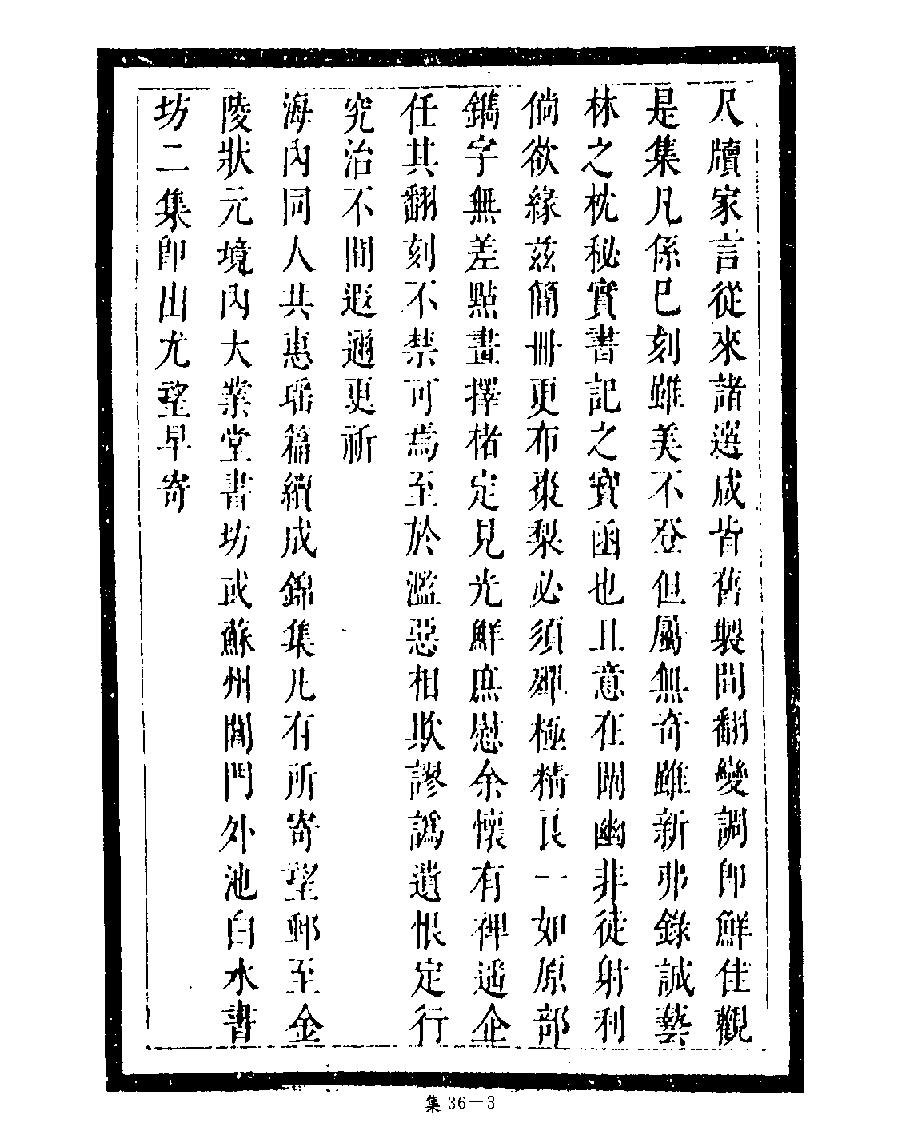 尺牘家言從來諸選咸皆舊製間翻變調即鮮佳觀
是集凡係已刻雖美不登但屬無奇雖新弗錄誠藝
林之枕秘實書記之寶函也且意在闡幽非徒射利
倘欲緣茲簡冊更布棗梨必須殫極精良一如原部
鐫字無差點畫擇楮定見光鮮庶慰余懷有裨遥企
任其翻刻不禁可焉至於濫惡相欺謬譌遺恨定行
究治不間遐邇更祈
海內同人共惠瑶篇續成錦集凡有所寄望郵至金
陵狀元境內大業堂書坊或蘇州閶門外池白水書
坊二集即出尤望早寄
集 36－3